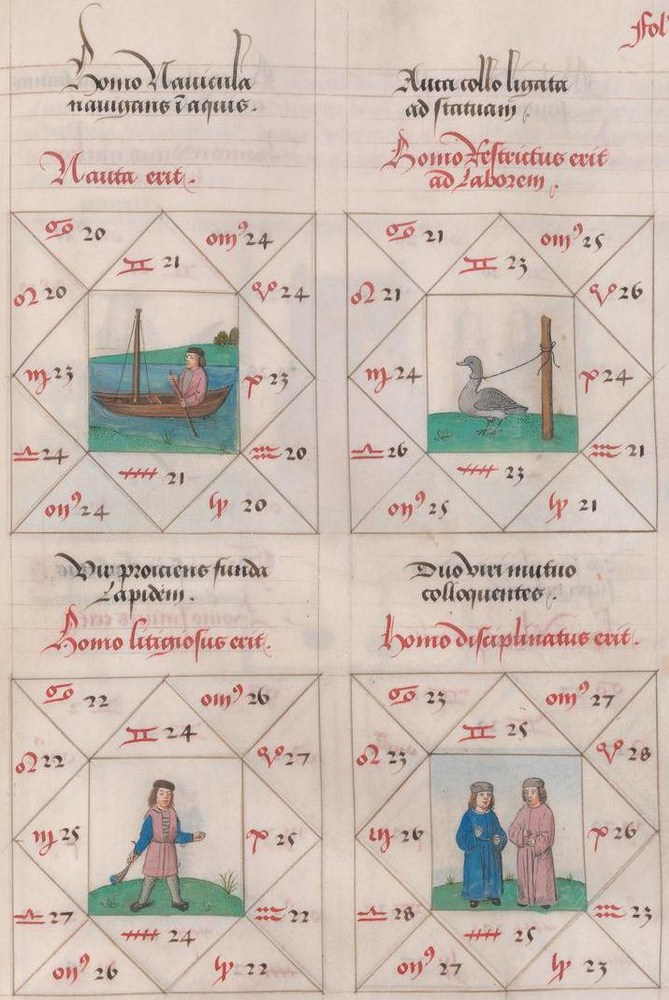 Fol
Homo Navicula
navigans ī aquis.
Nauta erit.
♋ 20
omꝰ 24
♊ 21
♌ 20
♉ 24
♍ 23
♈ 23
♎ 24
♒ 20
♐ 21
omꝰ 24
♑ 20
Auca collo ligata
ad statuam.
Homo Restrictus erit
ad Laborem.
♋ 21
omꝰ 25
♊ 23
♌ 21
♉ 26
♍ 24
♈ 24
♎ 26
♒ 21
♐ 23
omꝰ 25
♑ 21
Vir proiciens funda
Lapidem.
Homo litigiosus erit.
♋ 22
omꝰ 26
♊ 24
♌ 22
♉ 27
♍ 25
♈ 25
♎ 27
♒ 22
♐ 24
omꝰ 26
♑ 22
Duo viri mutuo
colloquentes.
homo disciplinatus erit.
♋ 23
omꝰ 27
♊ 25
♌ 23
♉ 28
♍ 26
♈ 26
♎ 28
♒ 23
♐ 25
omꝰ 27
♑ 23